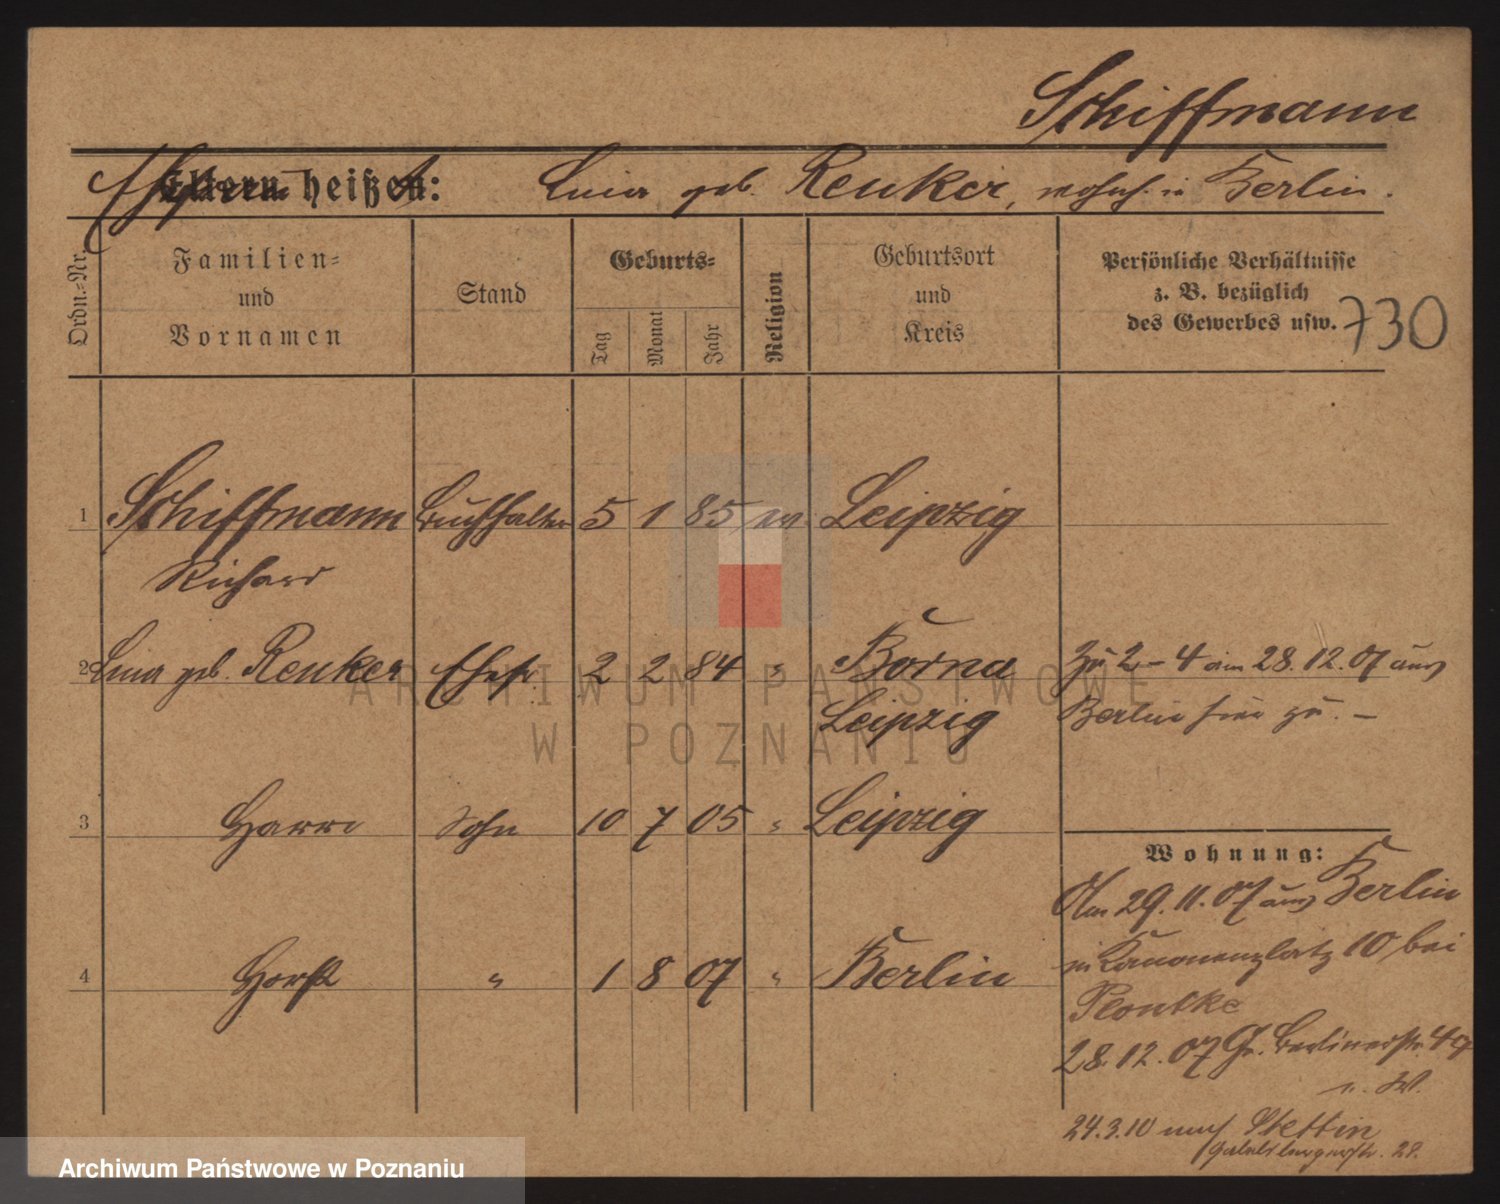 Schiffmann
Eltern heißen: Lina geb. Renker, wohnh. in Berlin.
Ordn.-Nr.
Familien-
und
Vornamen
Stand
Geburts-
Tag
Monat
Jahr
Religion
Geburtsort
und
Kreis
Persönliche Verhältnisse
z. B. bezüglich
des Gewerbes usw.
730
1 Schiffmann Buchhalter 5 1 85 ev. Leipzig
Richard
2 Lina geb. Renker Ehefr. 2 2 84 " Borna
Leipzig
Zu 2 - 4 am 28.12.07 aus
Berlin hier zu. -
3 Harri Sohn 10 7 05 " Leipzig
4 Horst " 1 8 07 " Berlin
Wohnung:
Am 29.11.07 aus Berlin
in Kanonenplatz 10 bei
Plontke
28.12.07 Gr. Berlinerstr. 49
24.3.10 nach Stettin
28.
ARCHIWUM PAŃSTWOWE
W POZNANIU
Archiwum Państwowe w Poznaniu